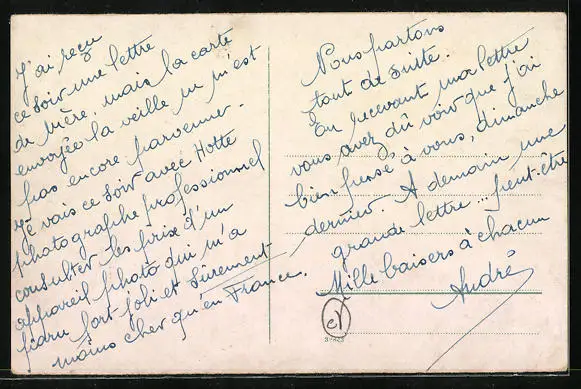 J'ai reçu
ce soir une lettre
de Mère, mais la carte
envoyée la veille ne m'est
pas encore parvenue.
Je vais ce soir avec Hotte
photographe professionnel
consulter les prix d'un
appareil photo qui m'a
paru fort joli et sûrement
moins cher qu'en France.
Nous partons
tout de suite.
En recevant ma lettre
vous avez dû voir que j'ai
bien pensé à vous, dimanche
dernier. A demain une
grande lettre... peut-être
Mille baisers à chacun
André